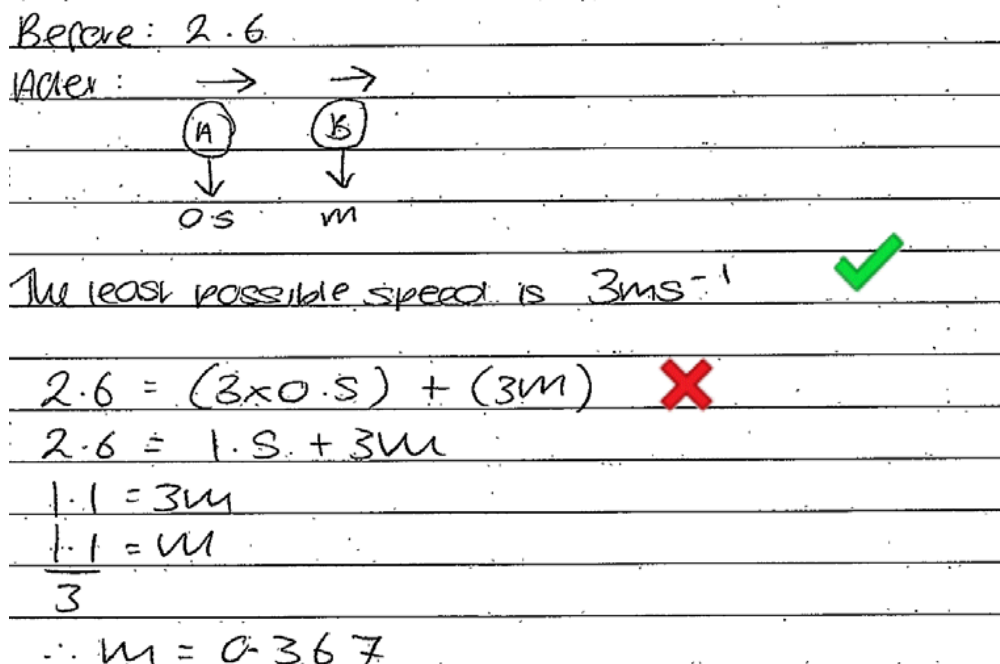 Before: 2.6
After:
A B
0.5 m
The least possible speed is 3ms⁻¹
2.6 = (3×0.5) + (3m)
2.6 = 1.5 + 3m
1.1 = 3m
1.1 = m
3
∴ m = 0.367